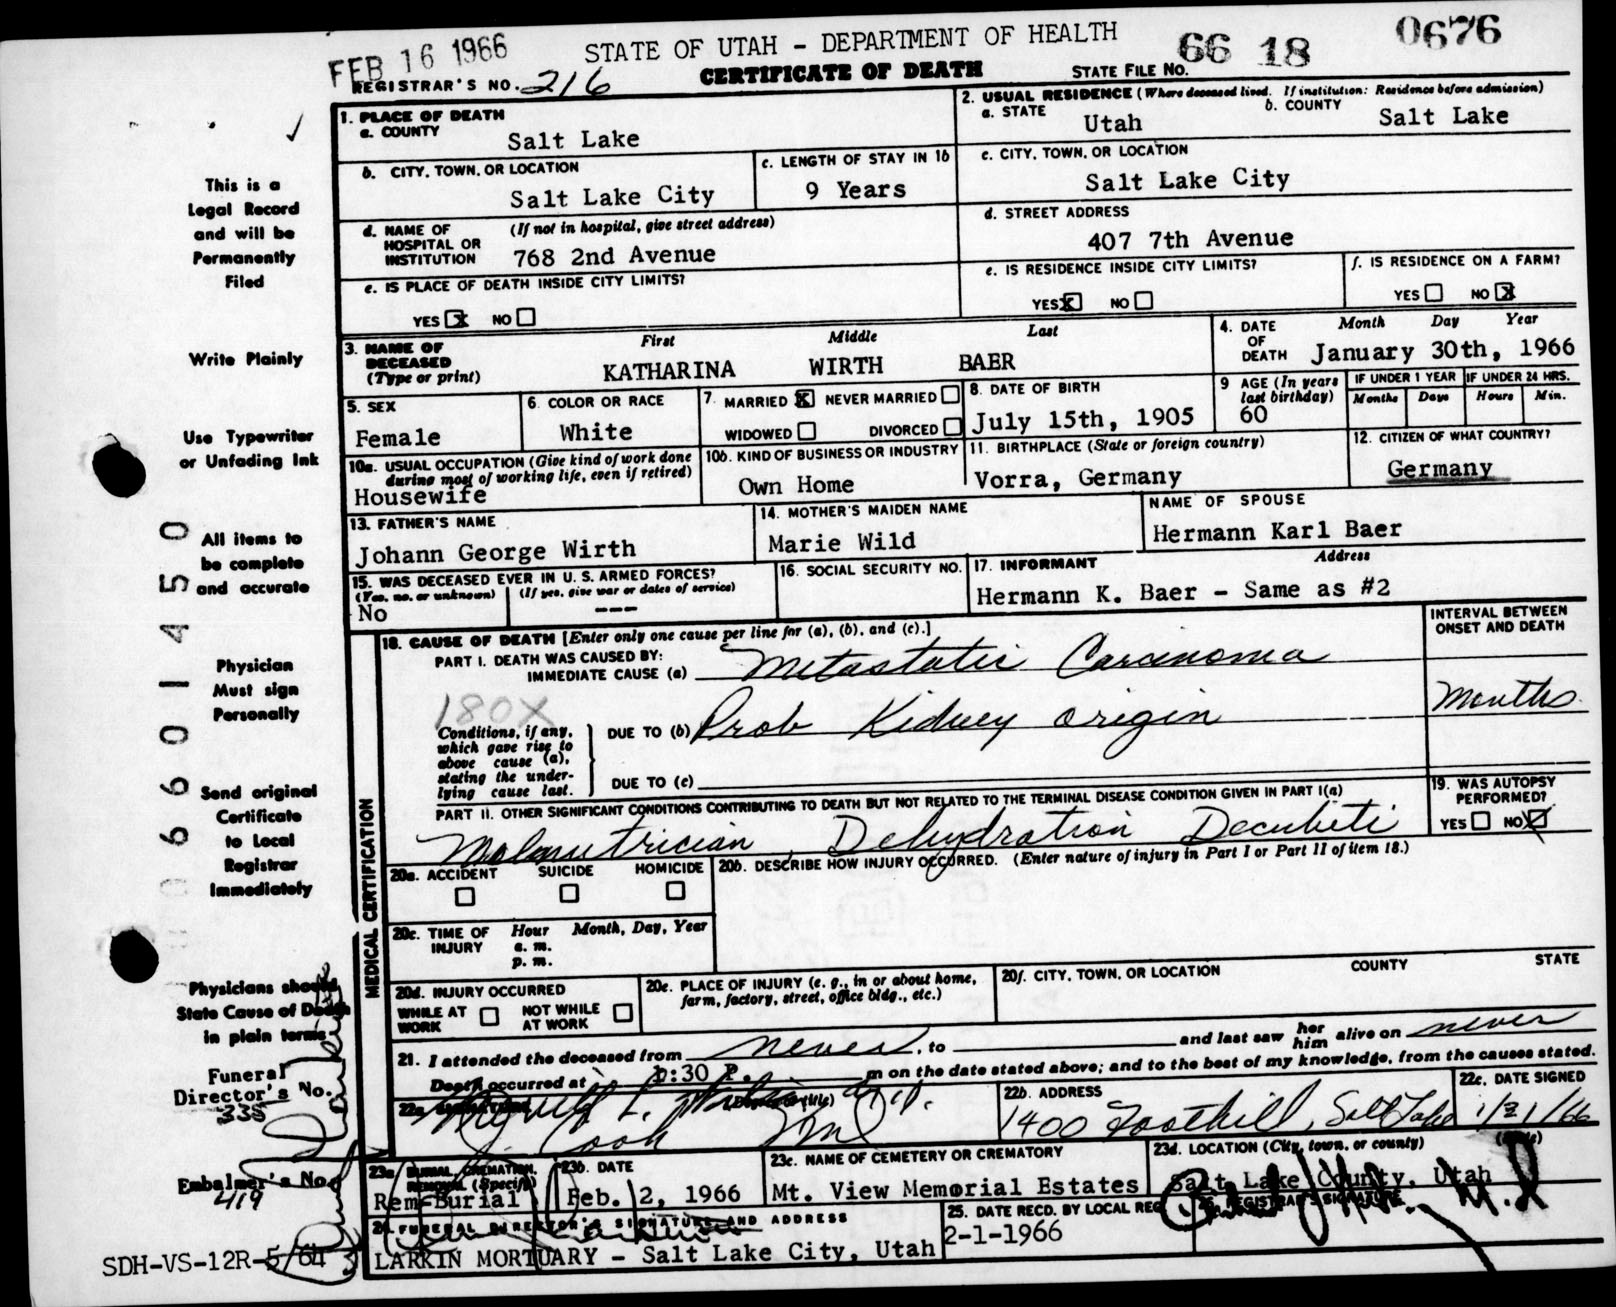 FEB 16 1966
STATE OF UTAH - DEPARTMENT OF HEALTH
66 18 0676
REGISTRAR'S NO. 216
CERTIFICATE OF DEATH
STATE FILE NO.
1. PLACE OF DEATH
a. COUNTY
Salt Lake
2. USUAL RESIDENCE (Where deceased lived. If institution: Residence before admission)
a. STATE Utah b. COUNTY Salt Lake
b. CITY, TOWN, OR LOCATION
Salt Lake City
c. LENGTH OF STAY IN 1b
9 Years
c. CITY, TOWN, OR LOCATION
Salt Lake City
d. NAME OF HOSPITAL OR INSTITUTION (If not in hospital, give street address)
768 2nd Avenue
d. STREET ADDRESS
407 7th Avenue
e. IS PLACE OF DEATH INSIDE CITY LIMITS?
YES X NO
e. IS RESIDENCE INSIDE CITY LIMITS?
YES X NO
f. IS RESIDENCE ON A FARM?
YES NO X
3. NAME OF DECEASED (Type or print)
First Middle Last
KATHARINA WIRTH BAER
4. DATE OF DEATH
Month Day Year
January 30th, 1966
5. SEX
Female
6. COLOR OR RACE
White
7. MARRIED X NEVER MARRIED
WIDOWED DIVORCED
8. DATE OF BIRTH
July 15th, 1905
9 AGE (In years last birthday)
60
IF UNDER 1 YEAR
Months Days
IF UNDER 24 HRS.
Hours Min.
10a. USUAL OCCUPATION (Give kind of work done
during most of working life, even if retired)
Housewife
10b. KIND OF BUSINESS OR INDUSTRY
Own Home
11. BIRTHPLACE (State or foreign country)
Vorra, Germany
12. CITIZEN OF WHAT COUNTRY?
Germany
13. FATHER'S NAME
Johann George Wirth
14. MOTHER'S MAIDEN NAME
Marie Wild
NAME OF SPOUSE
Hermann Karl Baer
15. WAS DECEASED EVER IN U. S. ARMED FORCES?
(Yes, no, or unknown) (If yes, give war or dates of service)
No ---
16. SOCIAL SECURITY NO.
17. INFORMANT Address
Hermann K. Baer - Same as #2
18. CAUSE OF DEATH [Enter only one cause per line for (a), (b), and (c).]
INTERVAL BETWEEN
ONSET AND DEATH
PART I. DEATH WAS CAUSED BY:
IMMEDIATE CAUSE (a) Metastatic Carcinoma
180X
Conditions, if any,
which gave rise to
above cause (a),
stating the under-
lying cause last.
DUE TO (b) Prob Kidney origin
Months
DUE TO (c)
PART II. OTHER SIGNIFICANT CONDITIONS CONTRIBUTING TO DEATH BUT NOT RELATED TO THE TERMINAL DISEASE CONDITION GIVEN IN PART I(a)
Malnutrician Dehydration Decubiti
19. WAS AUTOPSY
PERFORMED?
YES NO X
MEDICAL CERTIFICATION
20a. ACCIDENT SUICIDE HOMICIDE
20b. DESCRIBE HOW INJURY OCCURRED. (Enter nature of injury in Part I or Part II of item 18.)
20c. TIME OF INJURY
Hour Month, Day, Year
a. m.
p. m.
20d. INJURY OCCURRED
WHILE AT WORK NOT WHILE AT WORK
20e. PLACE OF INJURY (e. g., in or about home,
farm, factory, street, office bldg., etc.)
20f. CITY, TOWN, OR LOCATION COUNTY STATE
21. I attended the deceased from never, to and last saw her him alive on never
Death occurred at 1:30 P. m on the date stated above; and to the best of my knowledge, from the causes stated.
22b. ADDRESS
1400 Foothill, Salt Lake
22c. DATE SIGNED
1/31/66
23a BURIAL, CREMATION, REMOVAL (Specify)
Rem-Burial
23b. DATE
Feb. 2, 1966
23c. NAME OF CEMETERY OR CREMATORY
Mt. View Memorial Estates
23d. LOCATION (City, town, or county) (State)
Salt Lake County, Utah
24. FUNERAL DIRECTOR'S SIGNATURE AND ADDRESS
LARKIN MORTUARY - Salt Lake City, Utah
25. DATE RECD. BY LOCAL REG
2-1-1966
REGISTRAR'S SIGNATURE
This is a
Legal Record
and will be
Permanently
Filed
Write Plainly
Use Typewriter
or Unfading Ink
All items to
be complete
and accurate
Physician
Must sign
Personally
Send original
Certificate
to Local
Registrar
Immediately
Physicians should
State Cause of Death
in plain terms
Funeral
Director's No.
335
Embalmer's No.
419
SDH-VS-12R-5/64